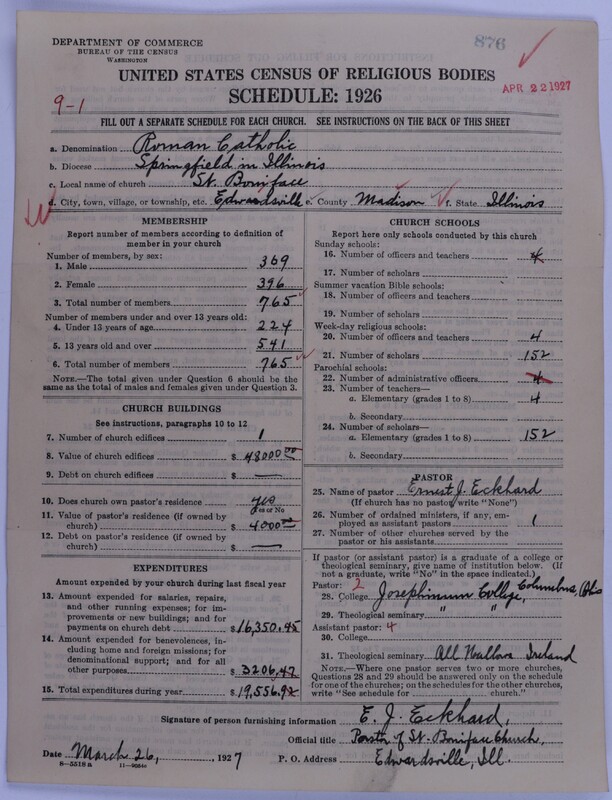 DEPARTMENT OF COMMERCE
BUREAU OF THE CENSUS
WASHINGTON
876
UNITED STATES CENSUS OF RELIGIOUS BODIES
SCHEDULE: 1926
APR 22 1927
9-1
FILL OUT A SEPARATE SCHEDULE FOR EACH CHURCH. SEE INSTRUCTIONS ON THE BACK OF THIS SHEET
a. Denomination Roman Catholic
b. Diocese Springfield in Illinois
c. Local name of church St. Boniface
d. City, town, village, or township, etc. Edwardsville e. County Madison f. State Illinois
MEMBERSHIP
Report number of members according to definition of
member in your church
Number of members, by sex:
1. Male 369
2. Female 396
3. Total number of members 765
Number of members under and over 13 years old:
4. Under 13 years of age 224
5. 13 years old and over 541
6. Total number of members 765
NOTE.—The total given under Question 6 should be the
same as the total of males and females given under Question 3.
CHURCH BUILDINGS
See instructions, paragraphs 10 to 12
7. Number of church edifices 1
8. Value of church edifices $ 48000.00
9. Debt on church edifices $ —
10. Does church own pastor's residence yes
Yes or No
11. Value of pastor's residence (if owned by
church) $ 4000.00
12. Debt on pastor's residence (if owned by
church) $ —
EXPENDITURES
Amount expended by your church during last fiscal year
13. Amount expended for salaries, repairs,
and other running expenses; for im-
provements or new buildings; and for
payments on church debt $ 16,350.45
14. Amount expended for benevolences, in-
cluding home and foreign missions; for
denominational support; and for all
other purposes $ 3206.47
15. Total expenditures during year $ 19,556.92
CHURCH SCHOOLS
Report here only schools conducted by this church
Sunday schools:
16. Number of officers and teachers 4
17. Number of scholars
Summer vacation Bible schools:
18. Number of officers and teachers
19. Number of scholars
Week-day religious schools:
20. Number of officers and teachers 4
21. Number of scholars 152
Parochial schools:
22. Number of administrative officers 4
23. Number of teachers—
a. Elementary (grades 1 to 8) 4
b. Secondary
24. Number of scholars—
a. Elementary (grades 1 to 8) 152
b. Secondary
PASTOR
25. Name of pastor Ernest J. Eckhard
(If church has no pastor, write "None")
26. Number of ordained ministers, if any, em-
ployed as assistant pastors 1
27. Number of other churches served by the
pastor or his assistants
If pastor (or assistant pastor) is a graduate of a college or
theological seminary, give name of institution below. (If
not a graduate, write "No" in the space indicated.)
Pastor: 2
28. College Josephinum College, Columbus, Ohio
29. Theological seminary " "
Assistant pastor: 4
30. College
31. Theological seminary All Hallows Ireland
NOTE.—Where one pastor serves two or more churches,
Questions 28 and 29 should be answered only on the schedule
for one of the churches; on the schedules for the other churches,
write "See schedule for church."
Signature of person furnishing information E. J. Eckhard,
Official title Pastor of St. Boniface Church,
Date March 26, , 1927 P. O. Address Edwardsville, Ill.
8-5518 a